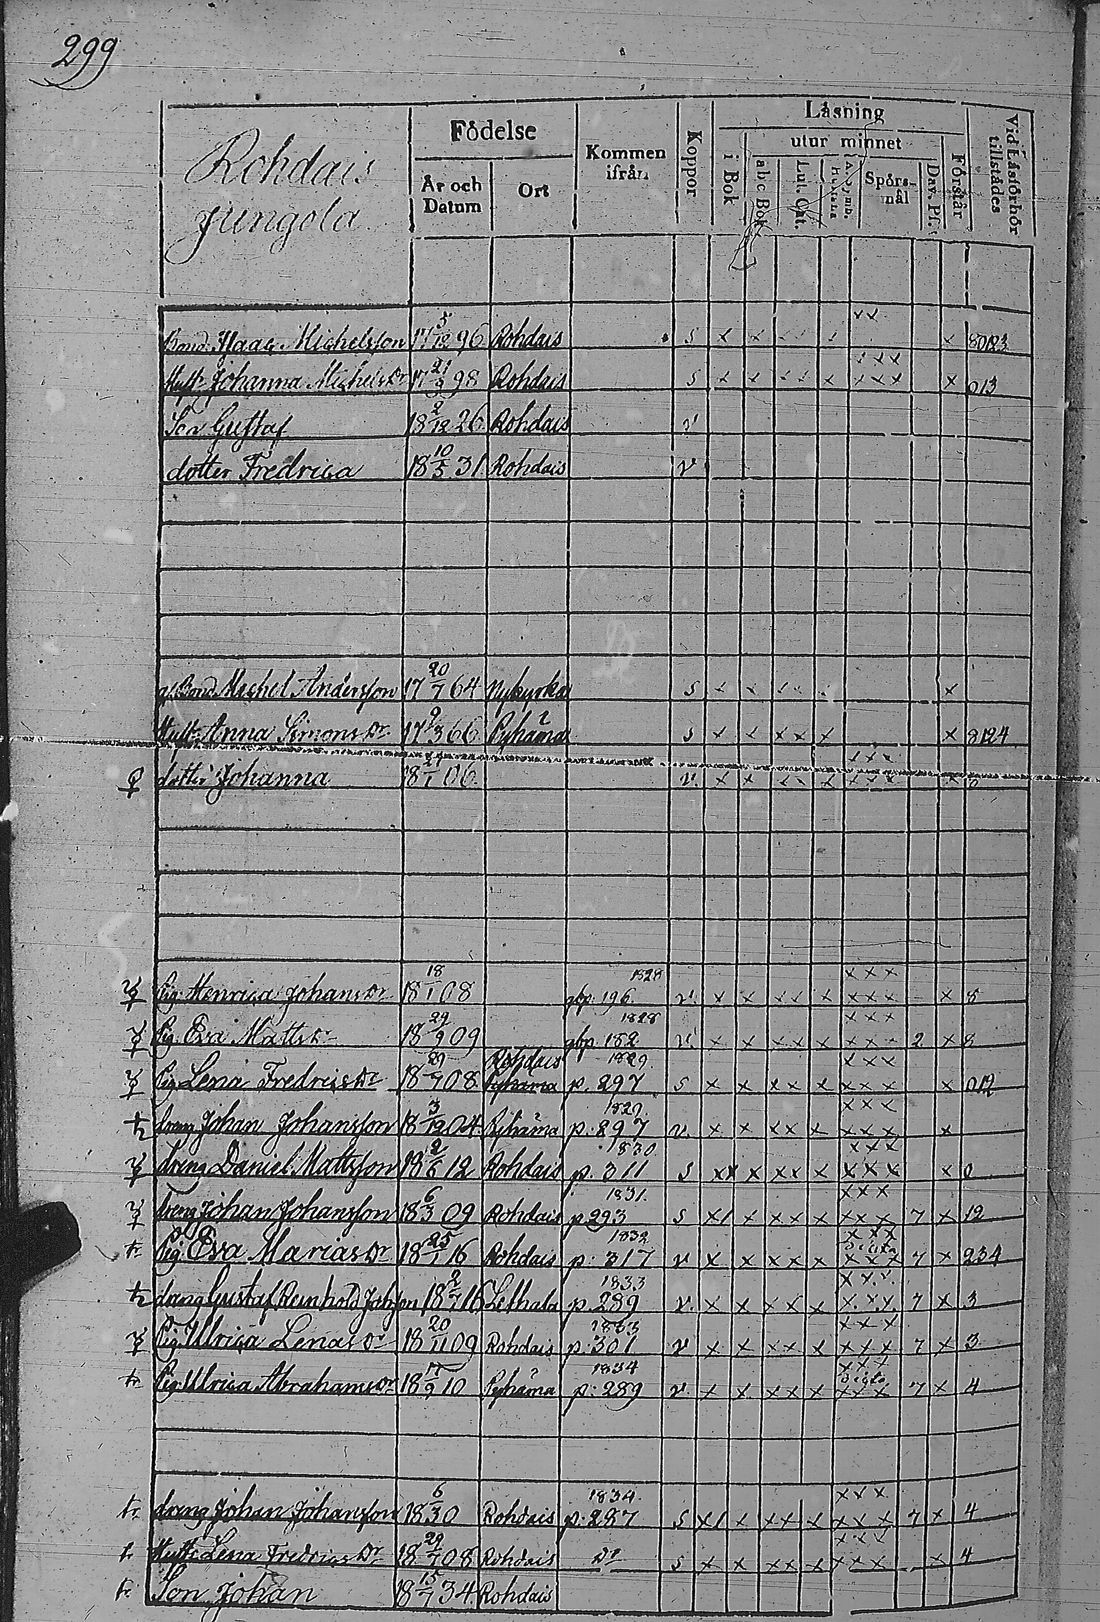 299
Rohdais
Jungola
Födelse
År och Datum
Ort
Kommen ifrån
Koppor
Läsning
i Bok
utur minnet
abc Bok
Lut. Cat.
Spörsmål
Dav. Ps.
Förstår
Vid Läsförhör tillstädes
Bond. Isaac Michelsson 17 5/12 96 Rohdais s x x x x x x x x 8023
Hust. Johanna Michels Dr 17 21/9 98 Rohdais s x x x x x x x x x x x x 013
Son Gustaf 18 2/12 26 Rohdais v
dotter Fredrica 18 10/5 31 Rohdais v
Michel Andersson 17 20/7 64 Nykyrka s x x x x x x
Hust. Anna Simons Dr 17 9/3 66 Pyhäma s x x x x x x 8124
dotter Johanna 18 /1 06 v. x x x x x x x x x x x x
Pig. Henrica Johans Dr 18 18/1 08 gbp. 196 1828 v. x x x x x x x x x x x x 8
Pig. Eva Matts Dr 18 29/9 09 gbp. 182 1828 v. x x x x x x x x x x x 2 x 8
Pig. Lena Fredrics Dr 18 29/7 08 Rohdais Pyhäma p. 297 1829. s x x x x x x x x x x x x 012
dreng Johan Johansson 18 3/12 04 Pyhäma p. 297 1829. v. x x x x x x x x x x x x
dreng Daniel Mattsson 18 2/6 12 Rohdais p. 311 1830 s x x x x x x x x x x x x x 0
dreng Johan Johansson 18 6/3 09 Rohdais p 293 1831. s x x x x x x x x x x x 7 x 12
Pig. Eva Marias Dr 18 25/ 16 Rohdais p: 317 1832 v x x x x x x x x x x x 7 x 234
dreng Gustaf Reinhold Johsson 18 2/7 16 Lethala p. 289 1833 v. x x x x x x x x x x x 7 x 3
Pig. Ulrica Lenas Dr 18 20/11 09 Rohdais p: 301 1833 v x x x x x x x x x x x 7 x 3
Pig. Ulrica Abrahams Dr 18 17/9 10 Pyhäma p: 289 1834 v. x x x x x x x x x x x 7 x 4
dreng Johan Johansson 18 6/3 0 Rohdais p: 287 1834. s x x x x x x x x x x 7 x 4
Hust. Lena Fredrics Dr 18 29/7 08 Rohdais Do s x x x x x x x x x x x x 4
Son Johan 18 15/7 34 Rohdais